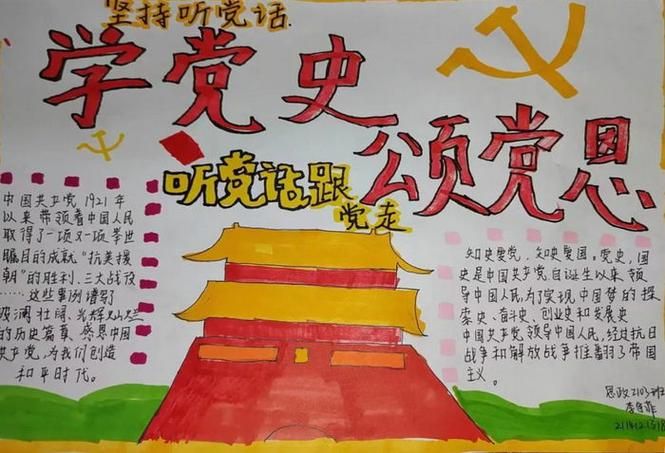 坚持听党话.
学党史
颂党恩
听党话跟
党走
中国共产党1921年
以来带领着中国人民
取得了一项又一项举世
瞩目的成就"抗美援
朝"的胜利、三大战役
……这些事例谱写
波澜壮阔、光辉灿烂
的历史篇章,感恩中国
共产党,为我们创造
和平时代。
知史爱党,知史爱国。党史,国
史是中国共产党自诞生以来领
导中国人民为了实现中国梦的探
索史、奋斗史、创业史和发展史
中国共产党领导中国人民,经过抗日
战争和解放战争推翻了帝国
主义。
思政2103班